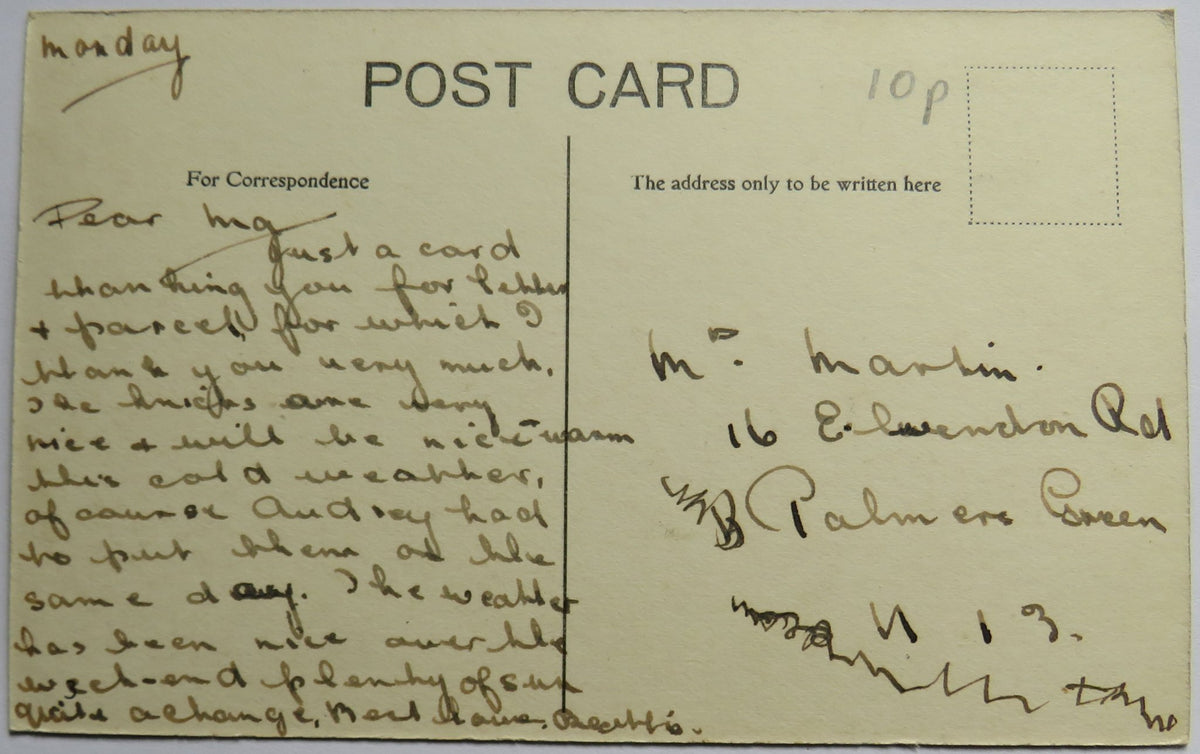 monday
POST CARD
10p
For Correspondence
The address only to be written here
Dear
Just a card
thanking you for letter
+ parcel, for which I
thank you very much,
The knicks are very
nice + will be nice - warm
this cold weather,
of course Audrey had
to put them on the
same day. The weather
has been nice over the
week-end plenty of sun
quite a change, Best love.
Mr. Martin.
16 Elwendon Rd
Palmers Green
N 13.